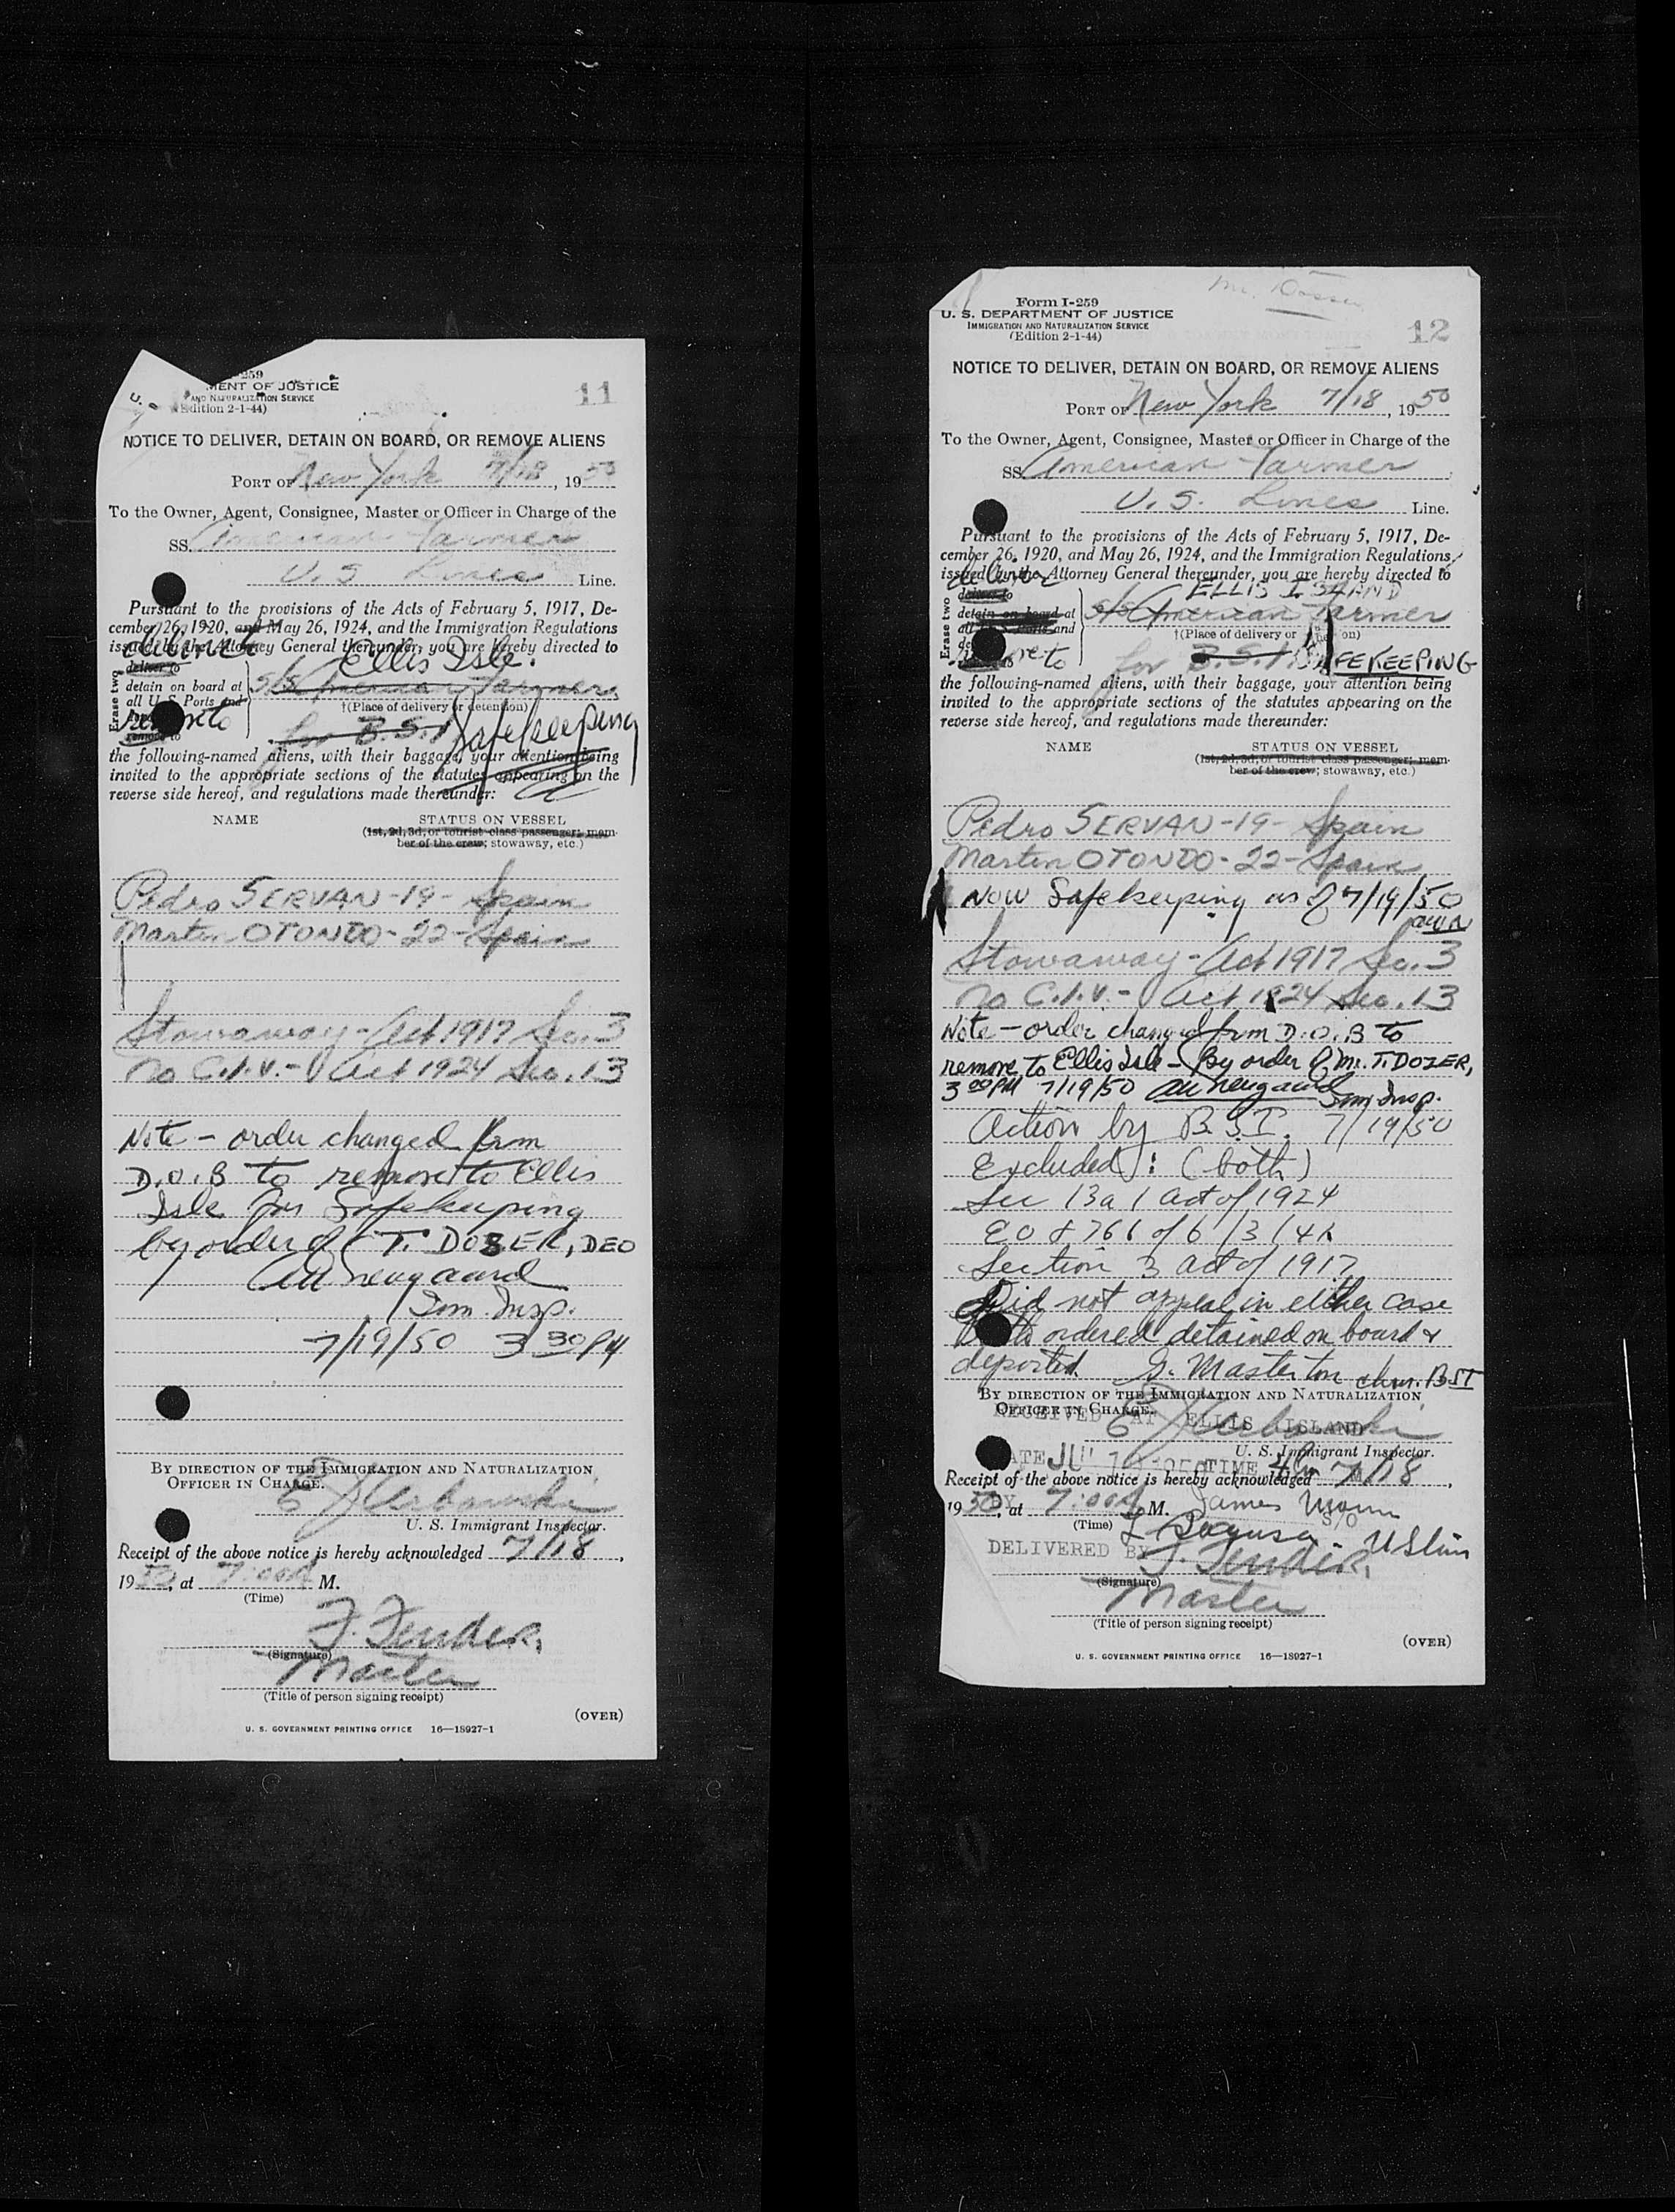 259
MENT OF JUSTICE
AND NATURALIZATION SERVICE
Edition 2-1-44)
11
NOTICE TO DELIVER, DETAIN ON BOARD, OR REMOVE ALIENS
PORT OF New York 7/18, 1950
To the Owner, Agent, Consignee, Master or Officer in Charge of the
SS. American Farmer
U.S Lines Line.
Pursuant to the provisions of the Acts of February 5, 1917, De-
cember 26, 1920, and May 26, 1924, and the Immigration Regulations
issued by the Attorney General thereunder, you are hereby directed to
Ellis Isle.
Erase two
deliver to
detain on board at
all U S Ports and
remove to
S/S American Farmer
†(Place of delivery or detention)
for B.S.I. Safekeeping
the following-named aliens, with their baggage, your attention being
invited to the appropriate sections of the statutes appearing on the
reverse side hereof, and regulations made thereunder:
NAME STATUS ON VESSEL
(1st, 2d, 3d, or tourist-class passenger; mem-
ber of the crew; stowaway, etc.)
Pedro SERVAN-19- Spain
Martin OTONDO-22-Spain
Stowaway-Act 1917 Sec. 3
No C.I.V.- Act 1924 Sec. 13
Note - order changed from
D.O.B to remove to Ellis
Isle for Safekeeping
by order of T. DOZER, DEO
Imm. Insp.
7/19/50 3 30 PM
BY DIRECTION OF THE IMMIGRATION AND NATURALIZATION
OFFICER IN CHARGE.
U. S. Immigrant Inspector.
Receipt of the above notice is hereby acknowledged 7/18,
1950, at 7:00 A M.
(Time)
F. Fender,
(Signature)
Master
(Title of person signing receipt)
(OVER)
U. S. GOVERNMENT PRINTING OFFICE 16—18927-1
Form I-259
U. S. DEPARTMENT OF JUSTICE
IMMIGRATION AND NATURALIZATION SERVICE
(Edition 2-1-44)
12
NOTICE TO DELIVER, DETAIN ON BOARD, OR REMOVE ALIENS
PORT OF New York 7/18, 1950
To the Owner, Agent, Consignee, Master or Officer in Charge of the
SS. American Farmer
U.S. Lines Line.
Pursuant to the provisions of the Acts of February 5, 1917, De-
cember 26, 1920, and May 26, 1924, and the Immigration Regulations
issued by the Attorney General thereunder, you are hereby directed to
deliver
ELLIS ISLAND
Erase two
deliver to
detain on board at
S/S American Farmer
†(Place of delivery or on)
for B.S.I. SAFEKEEPING
the following-named aliens, with their baggage, your attention being
invited to the appropriate sections of the statutes appearing on the
reverse side hereof, and regulations made thereunder:
NAME STATUS ON VESSEL
(1st, 2d, 3d, or tourist-class passenger; mem-
ber of the crew; stowaway, etc.)
Pedro SERVAN-19- Spain
Martin OTONDO-22-Spain
NOW Safekeeping as of 7/19/50
Stowaway-Act 1917 Sec. 3
No C.I.V.- Act 1924 Sec. 13
Note - order changed from D.O.B to
remove to Ellis Isle - by order of Mr. T. DOZER,
3 00 PM 7/19/50 Imm Insp.
Action by B.S.I. 7/19/50
Excluded: (both)
Sec 13a 1 act of 1924
EO 8766 of 6/3/41
Section 3 act of 1917
Did not appeal in either case
Both ordered detained on board &
deported. G. Masterton chm. BSI
BY DIRECTION OF THE IMMIGRATION AND NATURALIZATION
OFFICER IN CHARGE.
RECEIVED AT ELLIS ISLAND
U. S. Immigrant Inspector.
DATE JUL TIME
Receipt of the above notice is hereby acknowledged 7/18,
1950, at 7:00 A M. James
(Time)
DELIVERED BY F. Fender,
(Signature)
Master
(Title of person signing receipt)
(OVER)
U. S. GOVERNMENT PRINTING OFFICE 16—18927-1